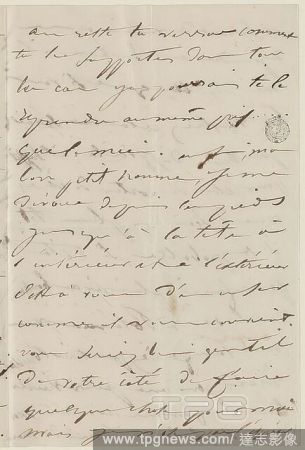 au reste tu verras comment
te les supportes dans tous
les cas je pourrais te le
reprendre au même prix
que le mien. enfin, mon
bon petit homme je me
dévoue depuis les pieds
jusqu'à la tête à
l'intérieur et à l'extérieur
à vous d'en user
comme il vous convient.
vous seriez bien gentil
de votre côté de faire
quelque chose pour moi
mais je
TPG
www.tpgnews.com / 達志影像